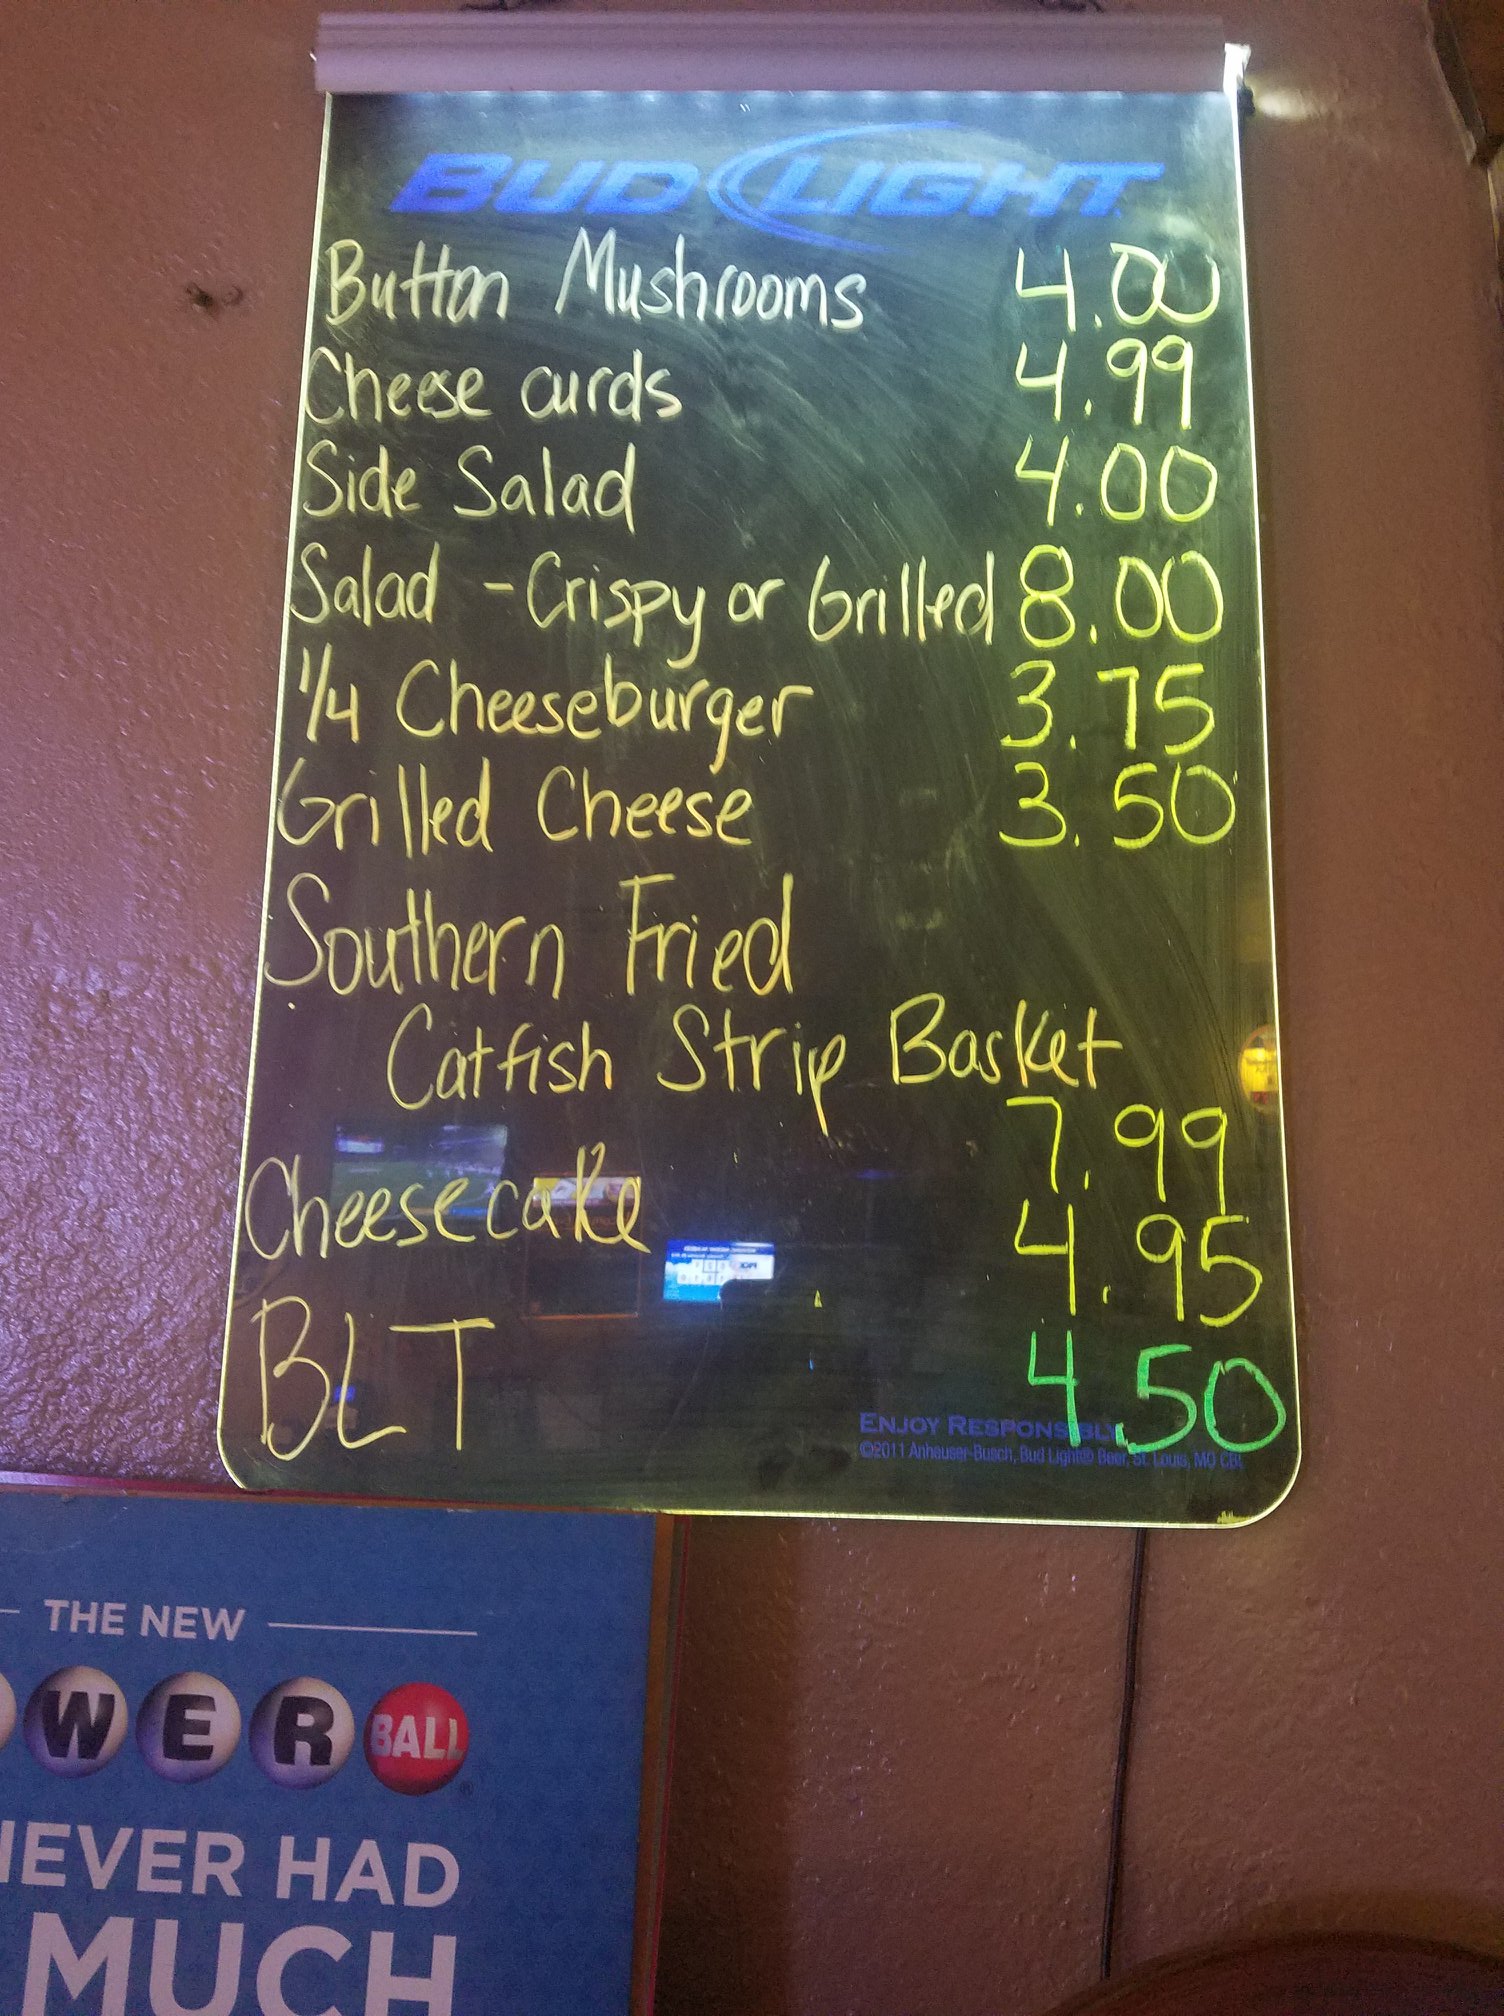 BUD LIGHT
Button Mushrooms 4.00
Cheese curds 4.99
Side Salad 4.00
Salad - Crispy or Grilled 8.00
1/4 Cheeseburger 3.75
Grilled Cheese 3.50
Southern Fried
Catfish Strip Basket
7.99
Cheesecake 4.95
BLT 4.50
ENJOY RESPONSIBLY
©2011 Anheuser-Busch, Bud Light® Beer, St. Louis, MO
THE NEW
WER BALL
EVER HAD
MUCH